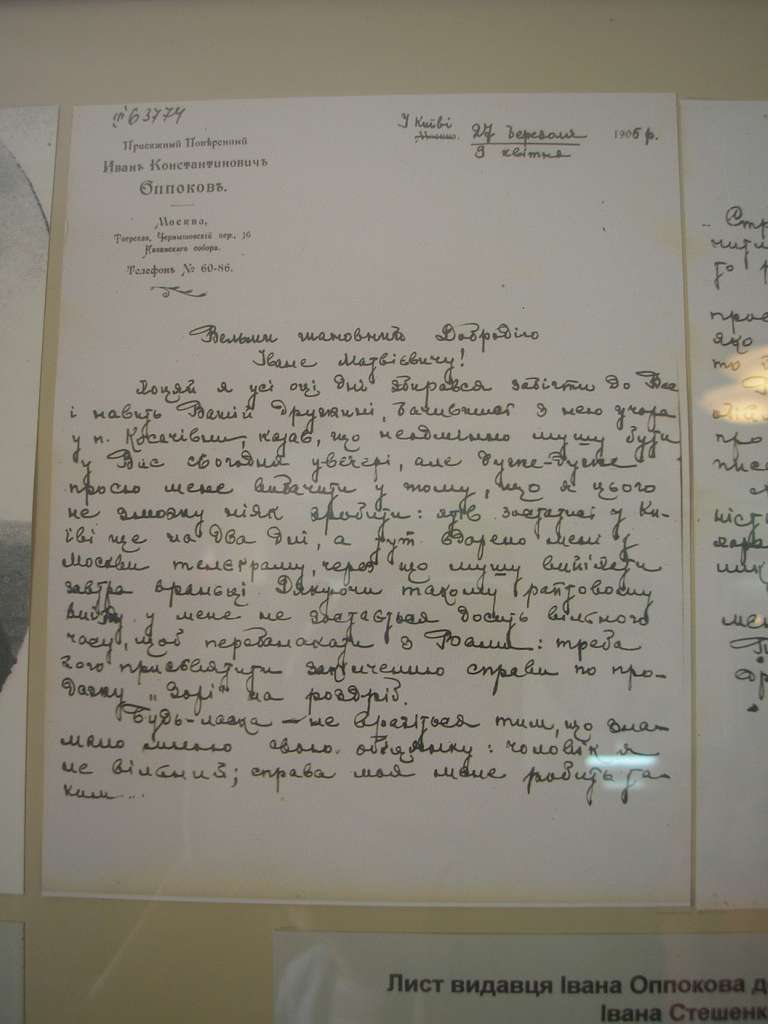 63774
Присяжный Повѣренный
Иванъ Константиновичъ
Оппоковъ.
Москва,
Тверская, Чернышевскій пер., 16
Казанскаго собора.
Телефонъ № 60-86.
У Київі
27 березоля 1906 р.
9 квітня
Вельми шановний Добродію
Іване Матвієвичу!
Хоцяй я усі оці дні збирався завісти до Вас
і навить Вашій Дружині, бачившись з нею учора
у п. Косачівни, казав, що неодмінно мушу бути
у Вас сьогодня увечері, але дуже-дуже
просю мене вибачити у тому, що я цього
не зможу ніяк зробити: я зостатись у Ки-
їві ще на два дні, а тут вдарено мені з
Москви телєграму, через що мушу виїхати
завтра вранці. Дякуючи такому раптовому
виїзду у мене не зостається досить вільного
часу, щоб перебалакати з Вами: треба
його присвятити закінченню справи по про-
дажу „Зорі" на роздріб.
Будь-ласка — не вражіться тим, що зла-
мано мною свою обіцянку: чоловік я
не вільний; справа моя мене робить та-
ким...
Стр
то
прос
яко
то
про
писе
ність
Лист видавця Івана Оппокова д
Івана Стешенк